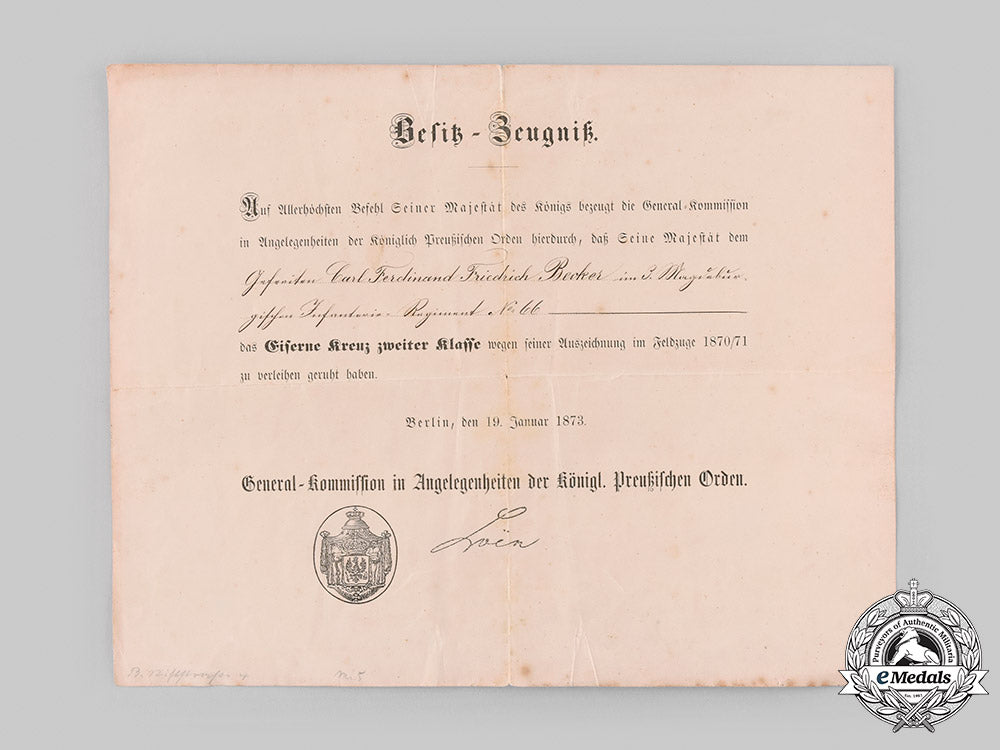 Besitz-Zeugniß.
Auf Allerhöchsten Befehl Seiner Majestät des Königs bezeugt die General-Kommission
in Angelegenheiten der Königlich Preußischen Orden hierdurch, daß Seine Majestät dem
Gefreiten Carl Ferdinand Friedrich Becker im 3. Magdebur-
gischen Infanterie-Regiment No 66
das Eiserne Kreuz zweiter Klasse wegen seiner Auszeichnung im Feldzuge 1870/71
zu verleihen geruht haben.
Berlin, den 19. Januar 1873.
General-Kommission in Angelegenheiten der Königl. Preußischen Orden.
Loën
Purveyors of Authentic Militaria
eMedals